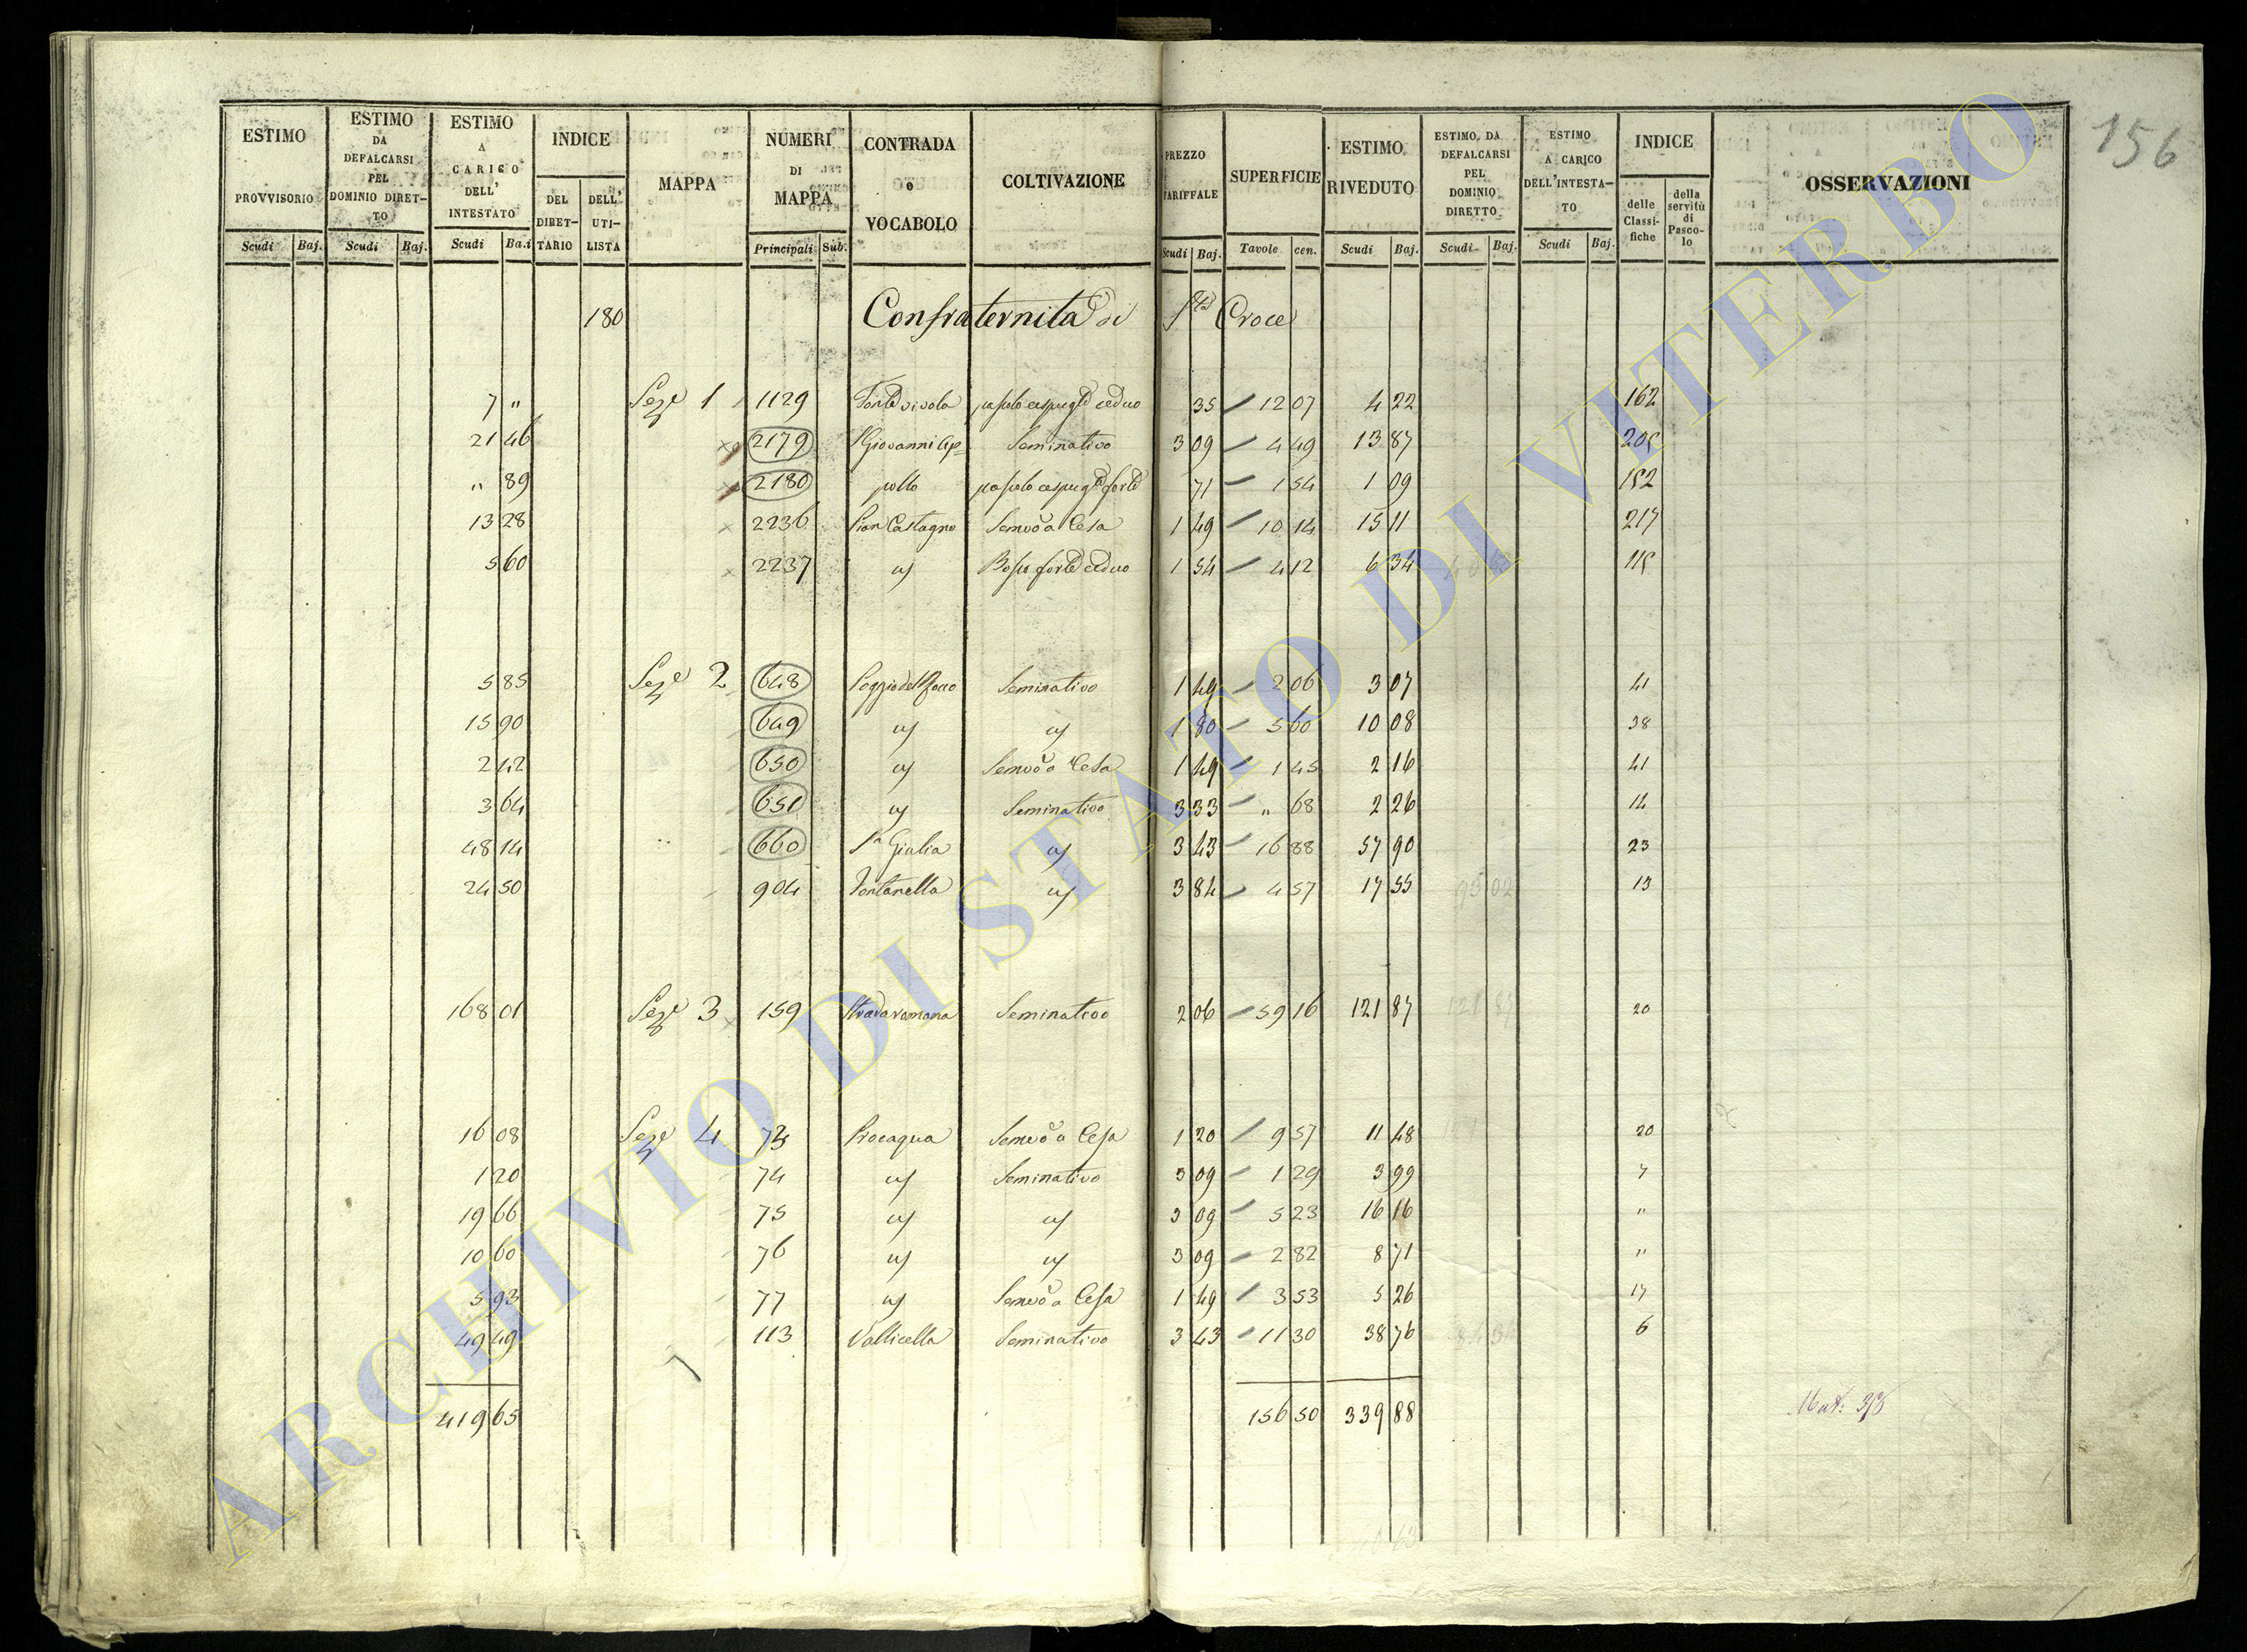 156
ESTIMO PROVVISORIO | ESTIMO DA DEFALCARSI PEL DOMINIO DIRETTO | ESTIMO A CARICO DELL' INTESTATO | INDICE | MAPPA | NUMERI DI MAPPA | CONTRADA o VOCABOLO | COLTIVAZIONE | PREZZO TARIFFALE | SUPERFICIE | ESTIMO RIVEDUTO | ESTIMO DA DEFALCARSI PEL DOMINIO DIRETTO | ESTIMO A CARICO DELL'INTESTATO | INDICE | OSSERVAZIONI
DEL DIRETTARIO | DELL' UTILISTA | delle Classifiche | della servitù di Pascolo
Scudi | Baj. | Scudi | Baj. | Scudi | Ba.i | Principali | Sub. | Scudi | Baj. | Tavole | cen. | Scudi | Baj. | Scudi | Baj. | Scudi | Baj.
180 Confraternita di S.ta Croce
7 " Seze 1 1129 35 12 07 4 22 162
21 46 2179 Seminativo 3 09 4 49 13 87 205
" 89 2180 pollo 71 1 54 1 09 152
13 28 2236 Pian Castagno Semvo a Cesa 1 49 10 14 15 11 217
5 60 2237 Bosco forte ceduo 1 54 4 12 6 34 115
5 85 Seze 2 648 Seminativo 1 49 2 06 3 07 41
15 90 649 1 80 5 60 10 08 38
2 42 650 Semvo a Cesa 1 49 1 45 2 16 41
3 64 651 Seminativo 3 33 " 68 2 26 14
48 14 660 Sa Giulia 3 43 16 88 57 90 23
24 50 904 Fontanella 3 84 4 57 17 55 95 02 13
168 01 Seze 3 159 Strada romana Seminativo 2 06 59 16 121 87 121 87 20
16 08 Seze 4 73 Procaqua Semvo a Cesa 1 20 9 57 11 48 20
1 20 74 Seminativo 3 09 1 29 3 99 7
19 66 75 3 09 5 23 16 16 "
10 60 76 3 09 2 82 8 71 "
5 93 77 Semvo a Cesa 1 49 3 53 5 26 17
49 49 113 Vallicella Seminativo 3 43 11 30 38 76 6
419 65 156 50 339 88
ARCHIVIO DI STATO DI VITERBO